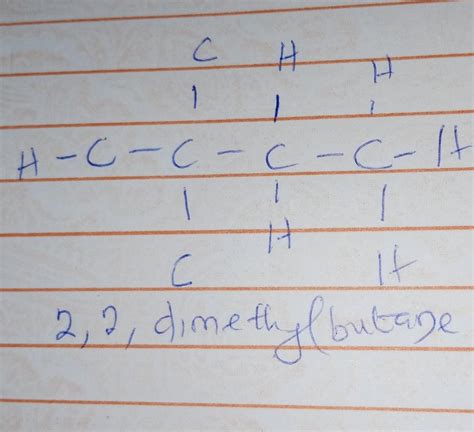 C H H
H - C - C - C - C - H
C H H
2, 2, dimethylbutane